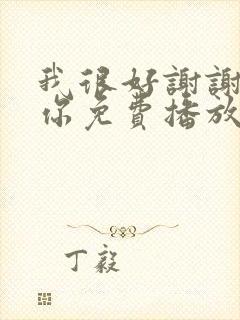 我很好謝謝
你免費播放
丁毅